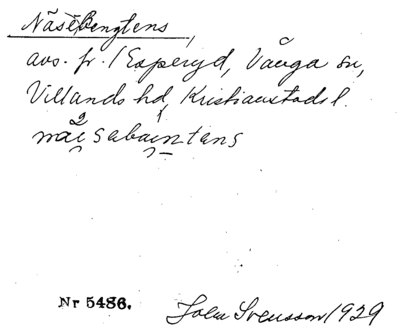 Näse Bengtens,
avs. fr. / Esperyd, Vånga sn,
Villands hd, Kristianstads l.
Nr 5486.
John Svensson 1929